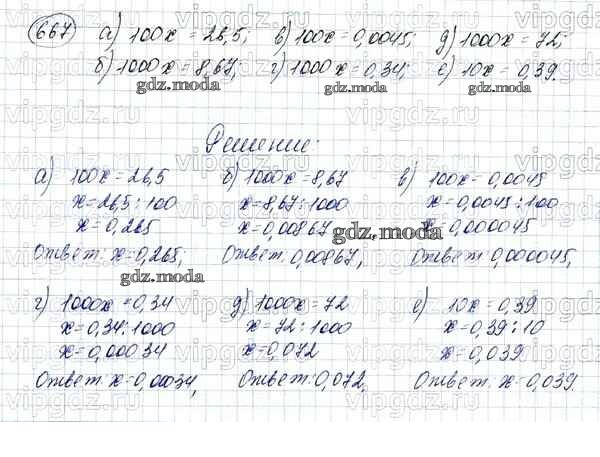 667 а) 100x = 26,5; в) 100x = 0,0045; д) 1000x = 72;
б) 1000x = 8,67; г) 1000x = 0,34; е) 10x = 0,39.
gdz.moda gdz.moda gdz.moda
Решение:
а) 100x = 26,5 б) 1000x = 8,67 в) 100x = 0,0045
x = 26,5 : 100 x = 8,67 : 1000 x = 0,0045 : 100
x = 0,265 x = 0,00867 x = 0,000045
gdz.moda
Ответ: x = 0,265; Ответ: 0,00867, Ответ: 0,000045,
gdz.moda
г) 1000x = 0,34 д) 1000x = 72 е) 10x = 0,39
x = 0,34 : 1000 x = 72 : 1000 x = 0,39 : 10
x = 0,00034 x = 0,072 x = 0,039
Ответ: x = 0,00034, Ответ: 0,072, Ответ: x = 0,039.
vipgdz.com